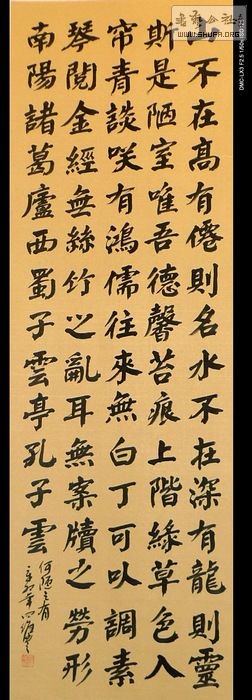 山不在高有僊則名水不在深有龍則靈
斯是陋室唯吾德馨苔痕上階緑草色入
帘青談咲有鴻儒往來無白丁可㕥調素
琴閱金經無絲竹之亂耳無案牘之勞形
南陽諸葛廬西蜀子雲亭孔子雲
何陋之有
DMC-LX3 F2.5